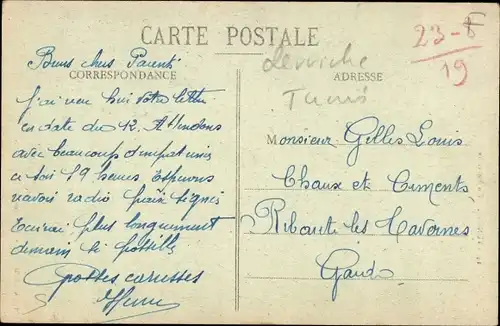 CARTE POSTALE
23-8
19
Derviche
Tunis
Biens chers Parents
CORRESPONDANCE
ADRESSE
J'ai reçu hier votre lettre
en date du 12. Attendons
avec beaucoup d'impatience
ce soir 19 heures Espérons
radio paix signée
Ecrirai plus longuement
demain si possible
Grosses caresses
Monsieur Gilles Louis
Chaux et Ciments
Ribaute les Tavernes
Gard